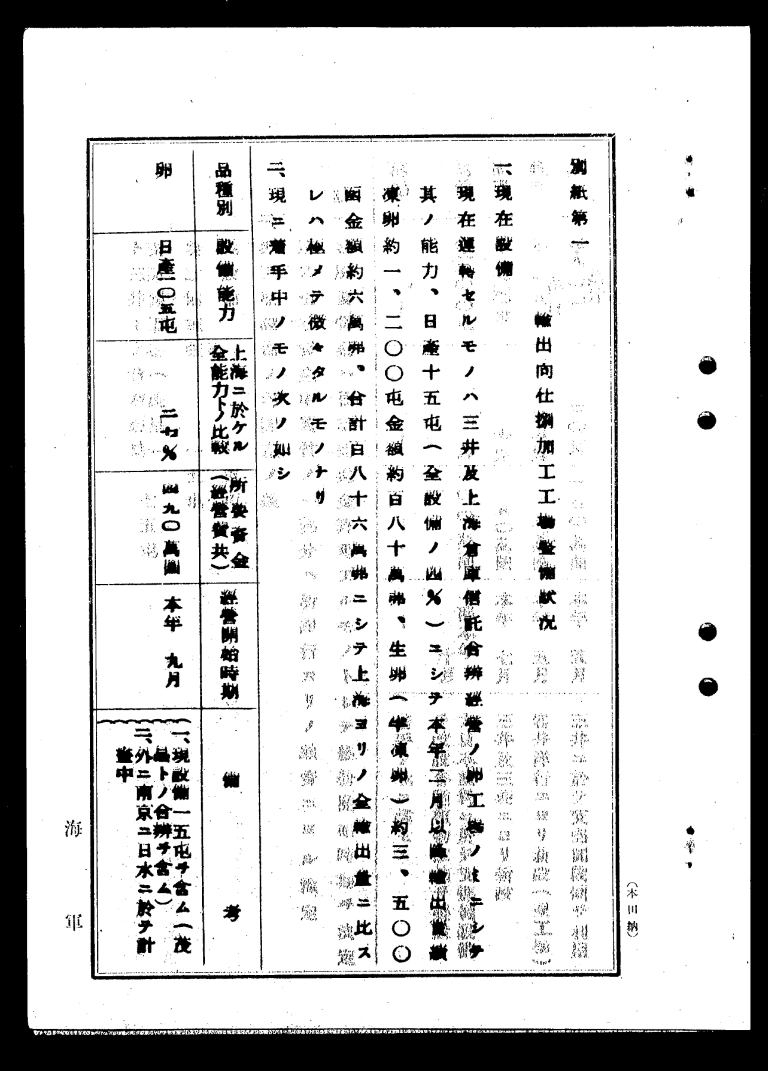 別紙第一
輸出向仕捌加工工場整備狀況
一、現在設備
現在運轉セルモノハ三井及上海倉庫信託合辨經營ノ卵工場ノミニシテ
其ノ能力、日產十五屯（全設備ノ四％）ニシテ本年二月以降輸出實績
凍卵約一、二〇〇屯金額約百八十萬弗、生卵（半凍卵）約三、五〇〇
函金額約六萬弗、合計百八十六萬弗ニシテ上海ヨリノ全輸出量ニ比ス
レハ極メテ微々タルモノナリ
二、現ニ着手中ノモノ次ノ如シ
品種別
設備能力
上海ニ於ケル
全能力トノ比較
所要資金
（經營資共）
經營開始時期
備考
卵
日產一〇五屯
二七％
四九〇萬圓
本年 九月
一、現設備一五屯ヲ含ム（茂
昌トノ合辨ヲ含ム）
二、外ニ南京ニ日水ニ於テ計
畫中
海軍
（木田納）